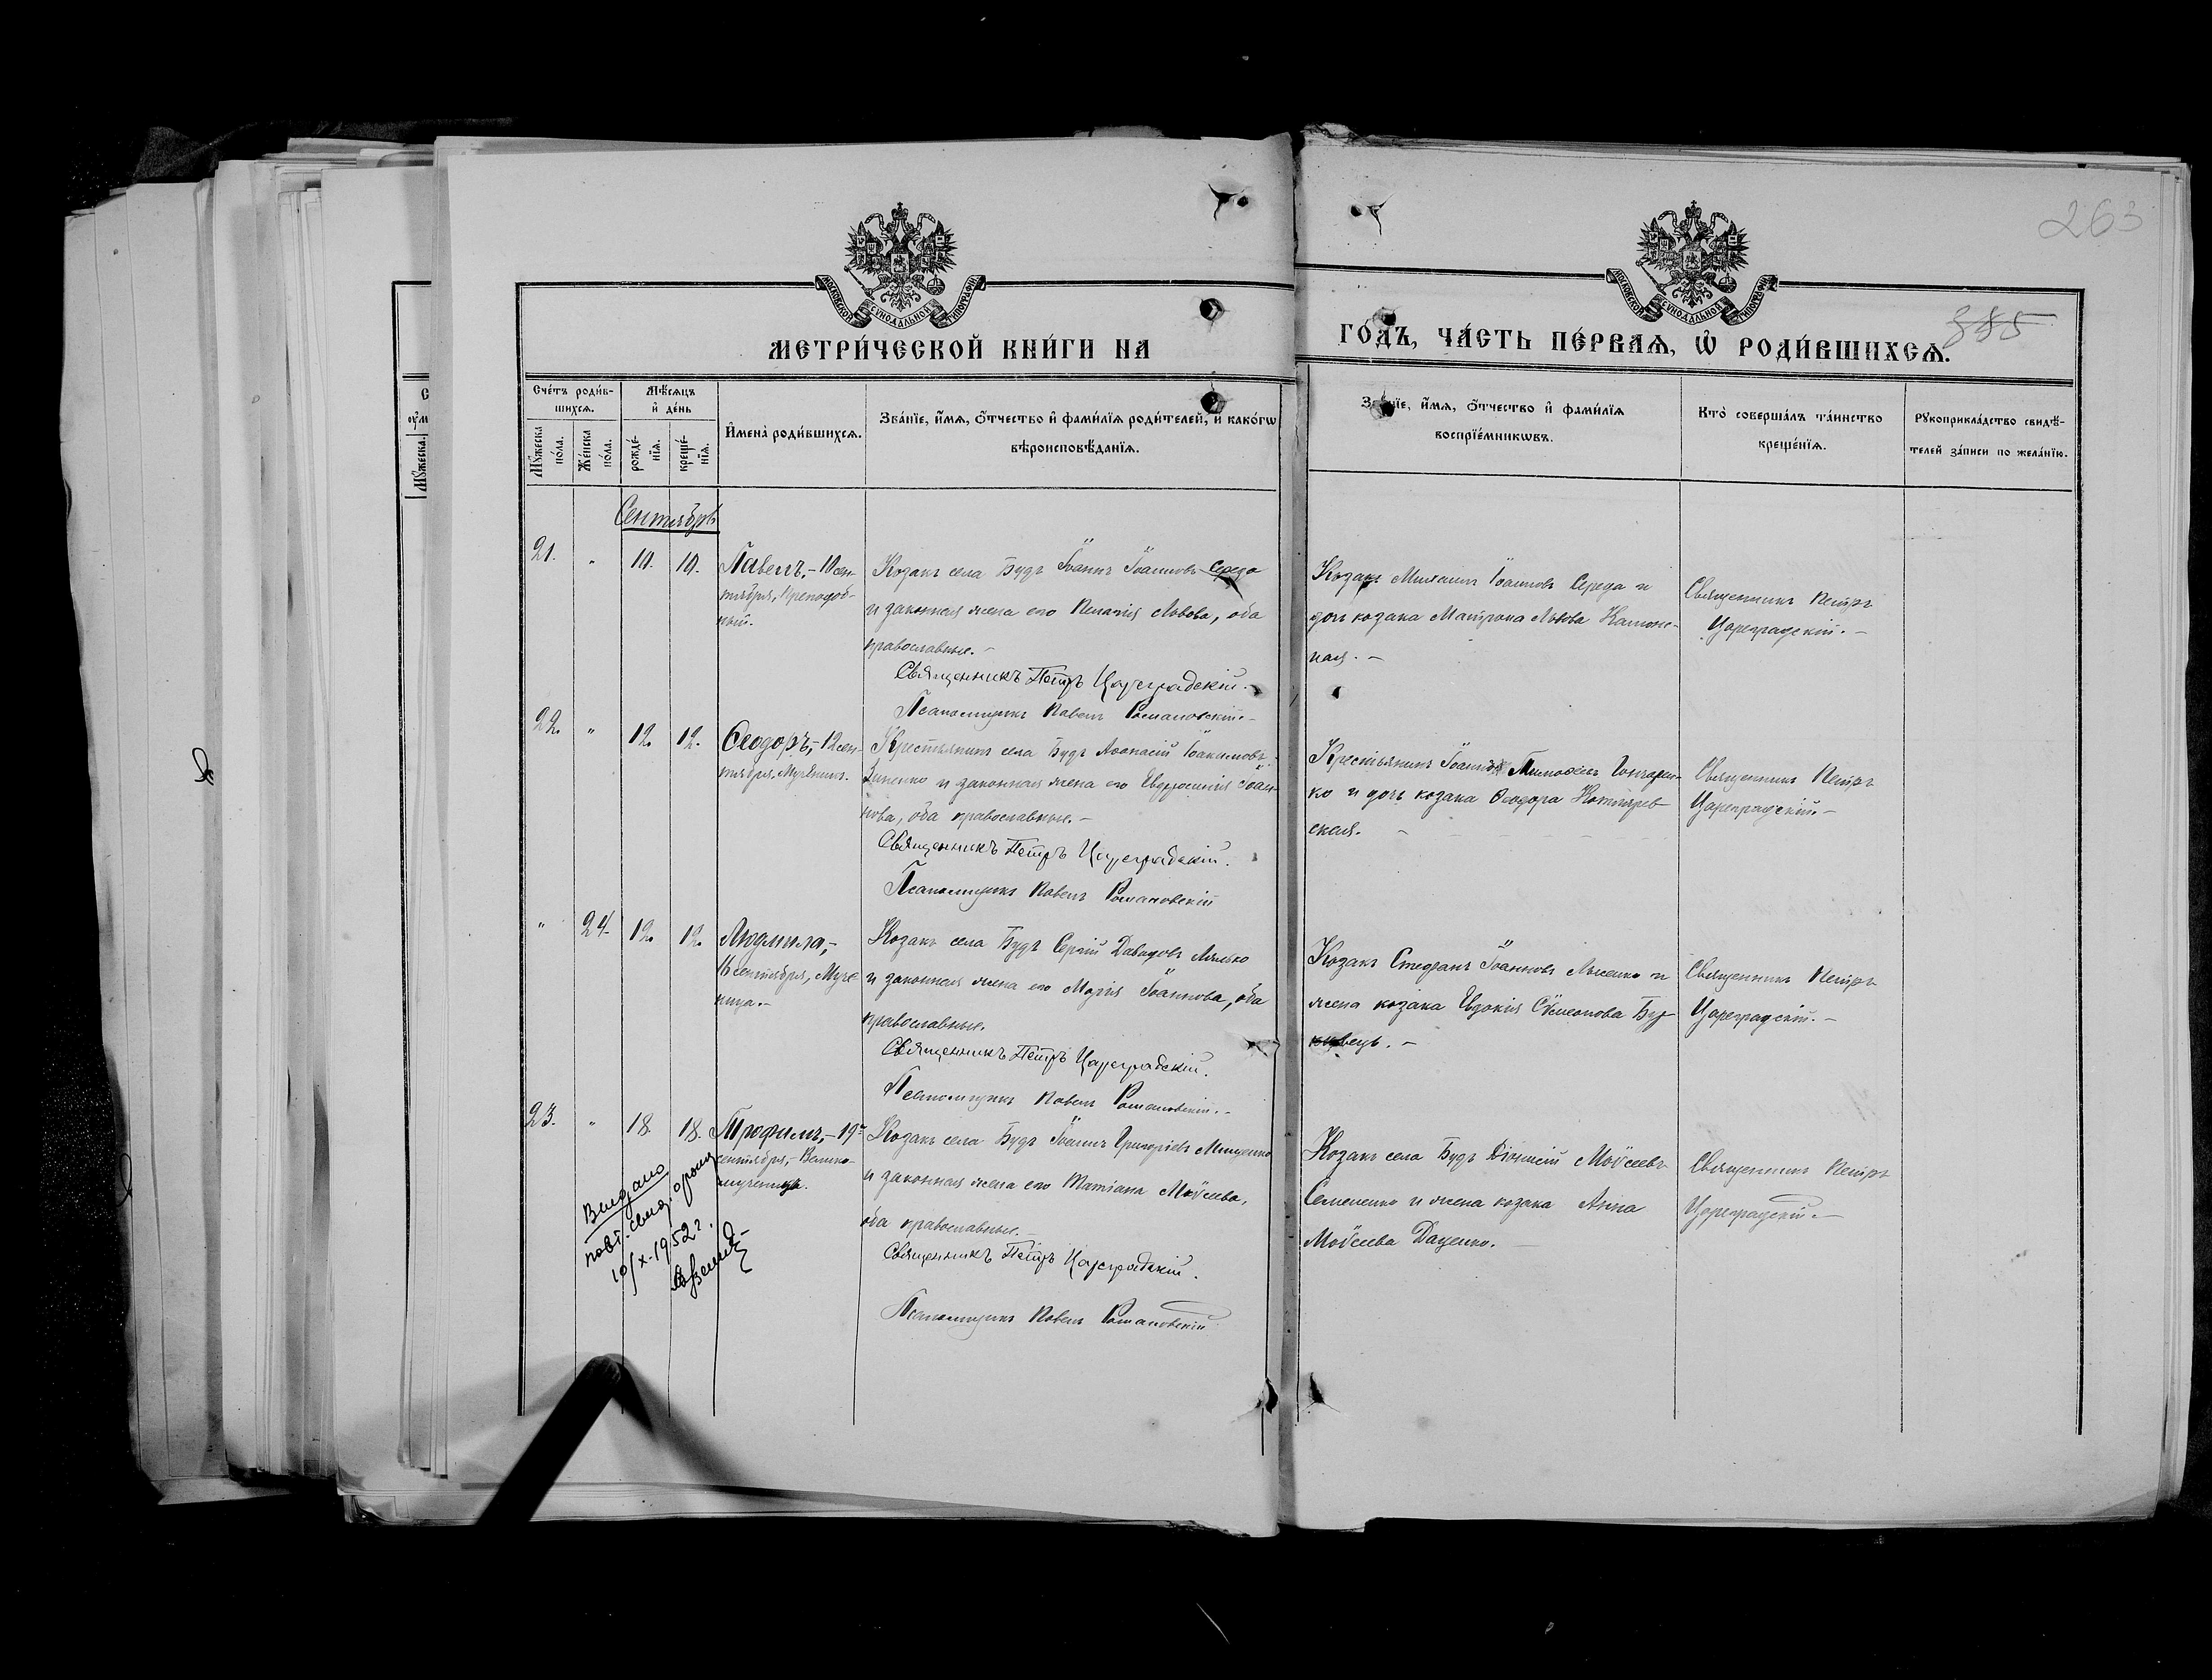 263
385
МОСКОВСКОЙ СѴНОДАЛЬНОЙ ТИПОГРАФІИ
МОСКОВСКОЙ СѴНОДАЛЬНОЙ ТИПОГРАФІИ
МЕТРИ́ЧЕСКОЙ КНИ́ГИ НА
ГО́ДЪ, ЧА́СТЬ ПЕ́РВАѦ, Ѡ҆ РОДИ́ВШИХСѦ.
Сче́тъ роди́в-
шихсѧ.
Мꙋ́жеска по́ла.
Же́нска по́ла.
Мѣ́сѧцъ
и҆ де́нь
рожде́-
нїѧ.
креще́-
нїѧ.
И҆мена̀ роди́вшихсѧ.
Зва́нїе, и҆́мѧ, ѻ҆́тчество и҆ фами́лїѧ роди́телей, и҆ како́гѡ
вѣроисповѣ́данїѧ.
Зва́нїе, и҆́мѧ, ѻ҆́тчество и҆ фами́лїѧ
воспрїе́мникѡвъ.
Кто̀ соверша́лъ та́инство
креще́нїѧ.
Рꙋкоприкла́дство свидѣ́-
телей за́писи по жела́нїю.
Сентябрь
21. " 10. 10. Павелъ, – 10 сен-
тября, Преподоб-
ный.
Козакъ села Будъ Іоаннъ Іоанновъ Середа
и законная жена его Пелагія Львова, оба
православные. –
Священникъ Петръ Цареградскій.
Псаломщикъ Павелъ Романовскій. –
Козакъ Михаилъ Іоанновъ Середа и
дочь козака Матрона Львова
ная. –
Священникъ Петръ
Цареградскій. –
22. " 12. 12. Ѳеодоръ, – 12 сен-
тября, Мученикъ.
Крестьянинъ села Будъ Аѳанасій Іоакимовъ
Зиненко и законная жена его Евфросинія Іоан-
нова, оба православные. –
Священникъ Петръ Цареградскій.
Псаломщикъ Павелъ Романовскій
Крестьянинъ Іоаннъ Тимоѳеевъ Гончарен-
ко и дочь козака Ѳеодора Котлярев-
ская.
Священникъ Петръ
Цареградскій. –
" 24. 12. 12. Людмила, –
16 сентября, Муче
ница. –
Козакъ села Будъ Сергій Давидовъ
и законная жена его Марія Іоаннова, оба
православные.
Священникъ Петръ Цареградскій.
Псаломщикъ Павелъ Романовскій. –
Козакъ Стефанъ Іоанновъ Лысенко и
жена козака Евдокія Сѵмеонова Буд-
вецъ. –
Священникъ Петръ
Цареградскій. –
23. " 18. 18. Трофимъ, – 19
сентября, – Велико-
мученика.
Козакъ села Будъ Іоаннъ Григоріевъ Мищенко
и законная жена его Татіана Моѵсеева,
оба православные. –
Священникъ Петръ Цареградскій.
Псаломщикъ Павелъ Романовскій
Козакъ села Будъ Діонисій Моѵсеевъ
Семененко и жена козака Анна
Моѵсеева Даценко.
Священникъ Петръ
Цареградскій. –
Выдано
повт. свид. о рожд
10/X-1952 г.